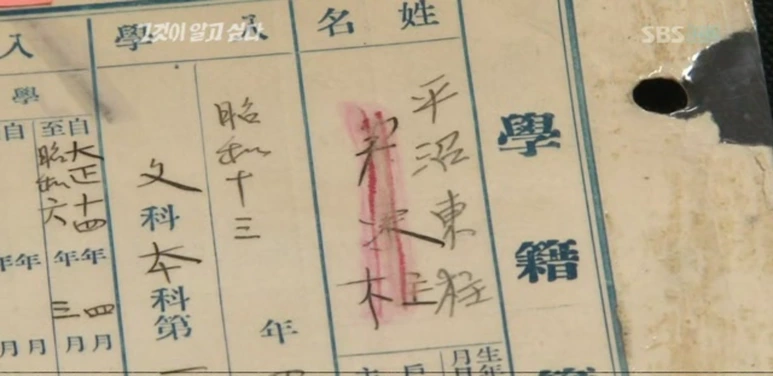 그것이 알고 싶다
SBS
學籍
姓名
平沼東柱
入學
昭和十三年
文科本科第
入
學
自大正十四年四月
至昭和六年三月
自年月